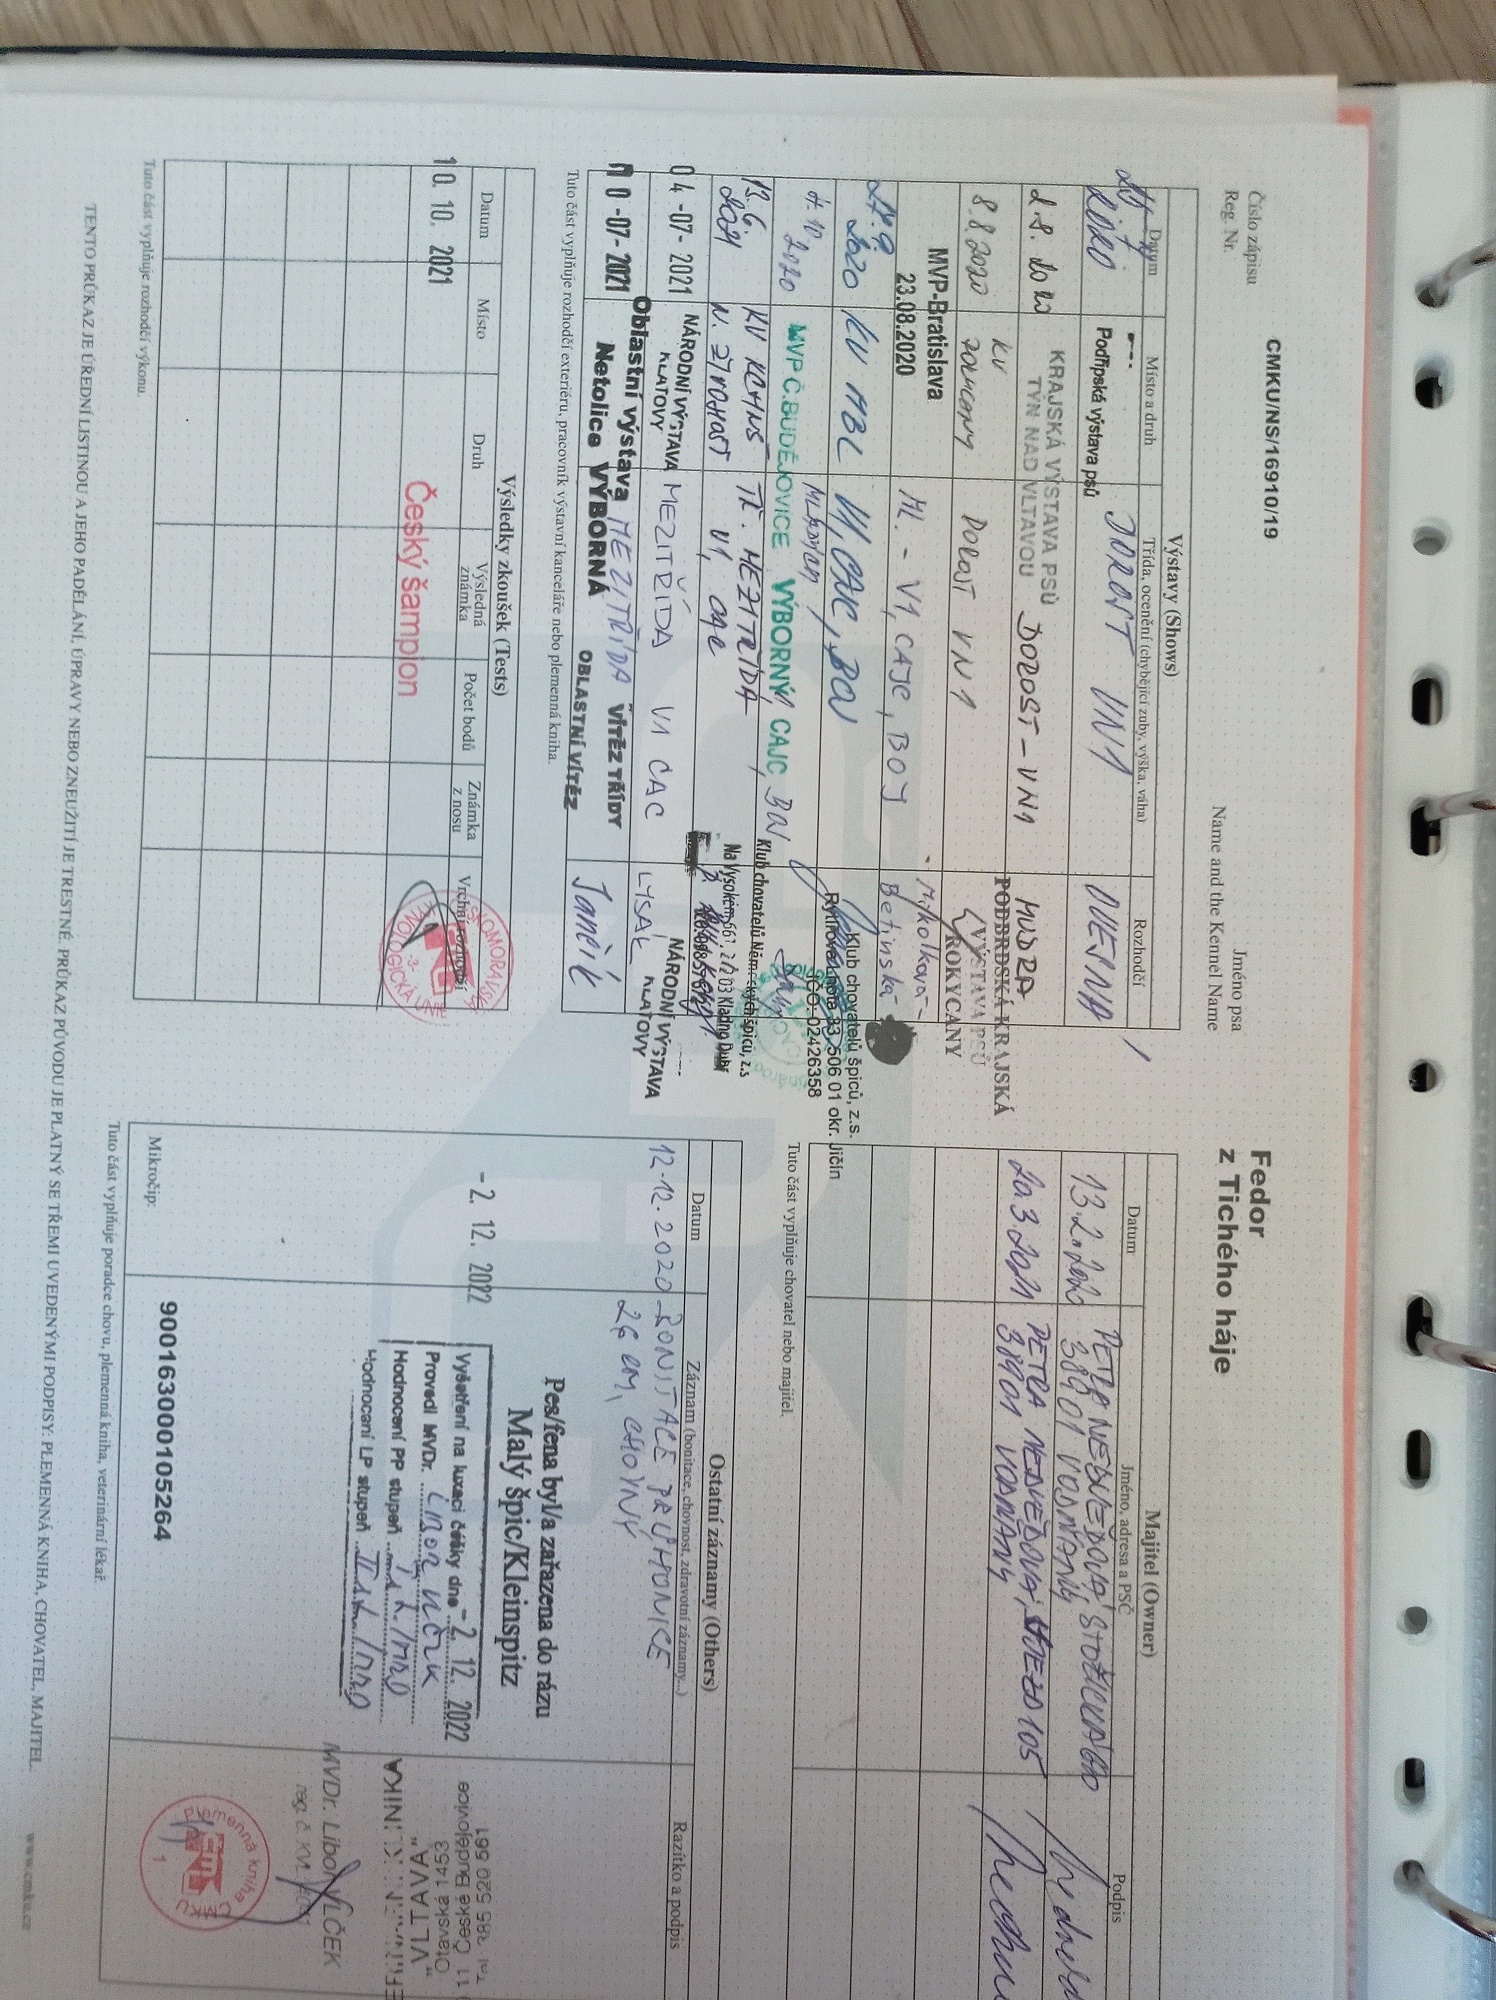 Číslo zápisu
Reg. Nr.
CMKU/NS/16910/19
Jméno psa
Name and the Kennel Name
Fedor
z Tichého háje
Výstavy (Shows)
Datum
Místo a druh
Třída, ocenění (chybějící zuby, výška, váha)
Rozhodčí
2020
Podřipská výstava psů
DOROST VN1
DUESNA
2.8. 2020
KRAJSKÁ VÝSTAVA PSŮ
TÝN NAD VLTAVOU
DOROST - VN1
MUDRA
8.8.2020
KV
DOROST VN1
PODBRDSKÁ KRAJSKÁ
VÝSTAVA PSŮ
ROKYCANY
MVP-Bratislava
23.08.2020
ML. - V1, CAJC, BOJ
Mrkolková -
Betinská
27.9
2020
KV HBL
V1, CAJC, BOJ
Klub chovatelů špiců, z.s.
Rytířova Lhota 33, 506 01 okr. Jičín
IČO: 02426358
4.10
2020
MVP Č.BUDĚJOVICE
MLADÝCH
VÝBORNÝ1, CAJC, BOJ
13.6.
2021
KV KCHNS
TŘ. MEZITŘÍDA
V1, CAC
Klub chovatelů Německých špiců, z.s
Na Vysokém 661, 272 03 Kladno Dubí
04 -07- 2021
NÁRODNÍ VÝSTAVA
KLATOVY
MEZITŘÍDA V1 CAC
LYSAK
NÁRODNÍ VÝSTAVA
KLATOVY
10 -07- 2021
Oblastní výstava
Netolice
MEZITŘÍDA
VÝBORNÁ
VÍTĚZ TŘÍDY
OBLASTNÍ VÍTĚZ
Janěk
Tuto část vyplňuje rozhodčí exteriéru, pracovník výstavní kanceláře nebo plemenná kniha.
Výsledky zkoušek (Tests)
Datum
Místo
Druh
Výsledná známka
Počet bodů
Známka z nosu
Vrchní rozhodčí
10. 10. 2021
Český šampion
Tuto část vyplňuje rozhodčí výkonu.
Majitel (Owner)
Datum
Jméno, adresa a PSČ
Podpis
13.2.2020
PETRA NEDVĚDOVÁ,
389 01 VODŇANY
20.3.2021
PETRA NEDVĚDOVÁ,
389 01 VODŇANY
Tuto část vyplňuje chovatel nebo majitel.
Ostatní záznamy (Others)
Datum
Záznam (bonitace, chovnost, zdravotní záznamy...)
Razítko a podpis
12.12.2020
BONITACE PRŮHONICE
26 cm, CHOVNÝ
Pes/fena byl/a zařazena do rázu
Malý špic/Kleinspitz
-2. 12. 2022
Vyšetření na luxaci čéšky dne -2. 12. 2022
Provedl MVDr. Libor Vlček
Hodnocení PP stupeň I st./
Hodnocení LP stupeň II st./
"VLTAVA"
Otavská 1453
11 České Budějovice
Tel 385 520 561
MVDr. Libor VLČEK
Mikročip:
900163000105264
Plemenná kniha ČMKU
1
Tuto část vyplňuje poradce chovu, plemenná kniha, veterinární lékař.
TENTO PRŮKAZ JE ÚŘEDNÍ LISTINOU A JEHO PADĚLÁNÍ, ÚPRAVY NEBO ZNEUŽITÍ JE TRESTNÉ. PRŮKAZ PŮVODU JE PLATNÝ SE TŘEMI UVEDENÝMI PODPISY: PLEMENNÁ KNIHA, CHOVATEL, MAJITEL.
www.cmku.cz